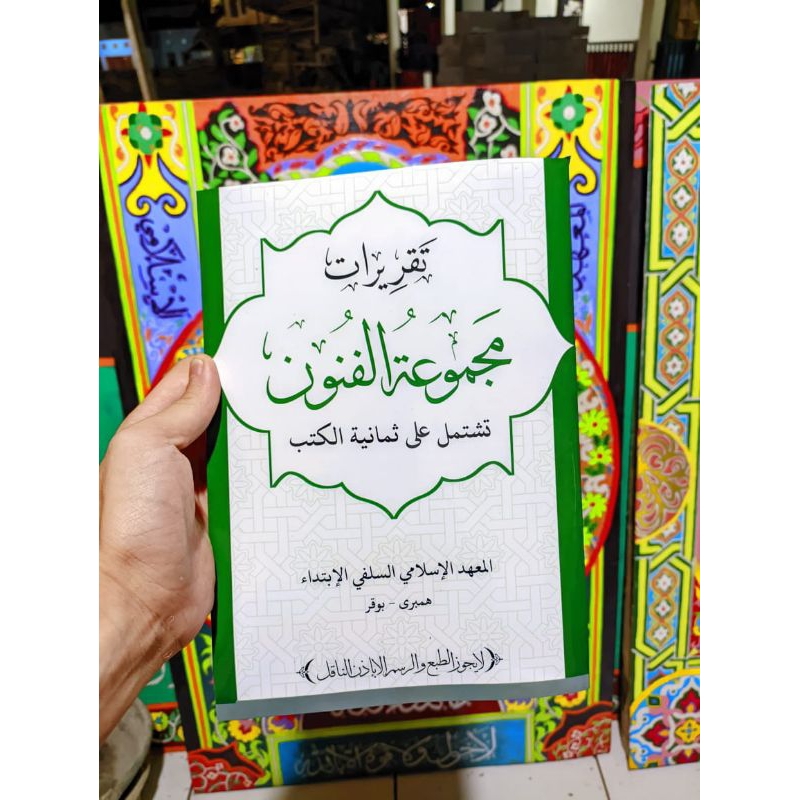 تقريرات
مَجْمُوعَةُ الفُنُون
تشتمل على ثمانية الكتب
المعهد الإسلامي السلفي الإبتداء
همبرى - بوقر
﴿لايجوز الطبع والرسم الا باذن الناقل﴾
الإسلامي
المعهد